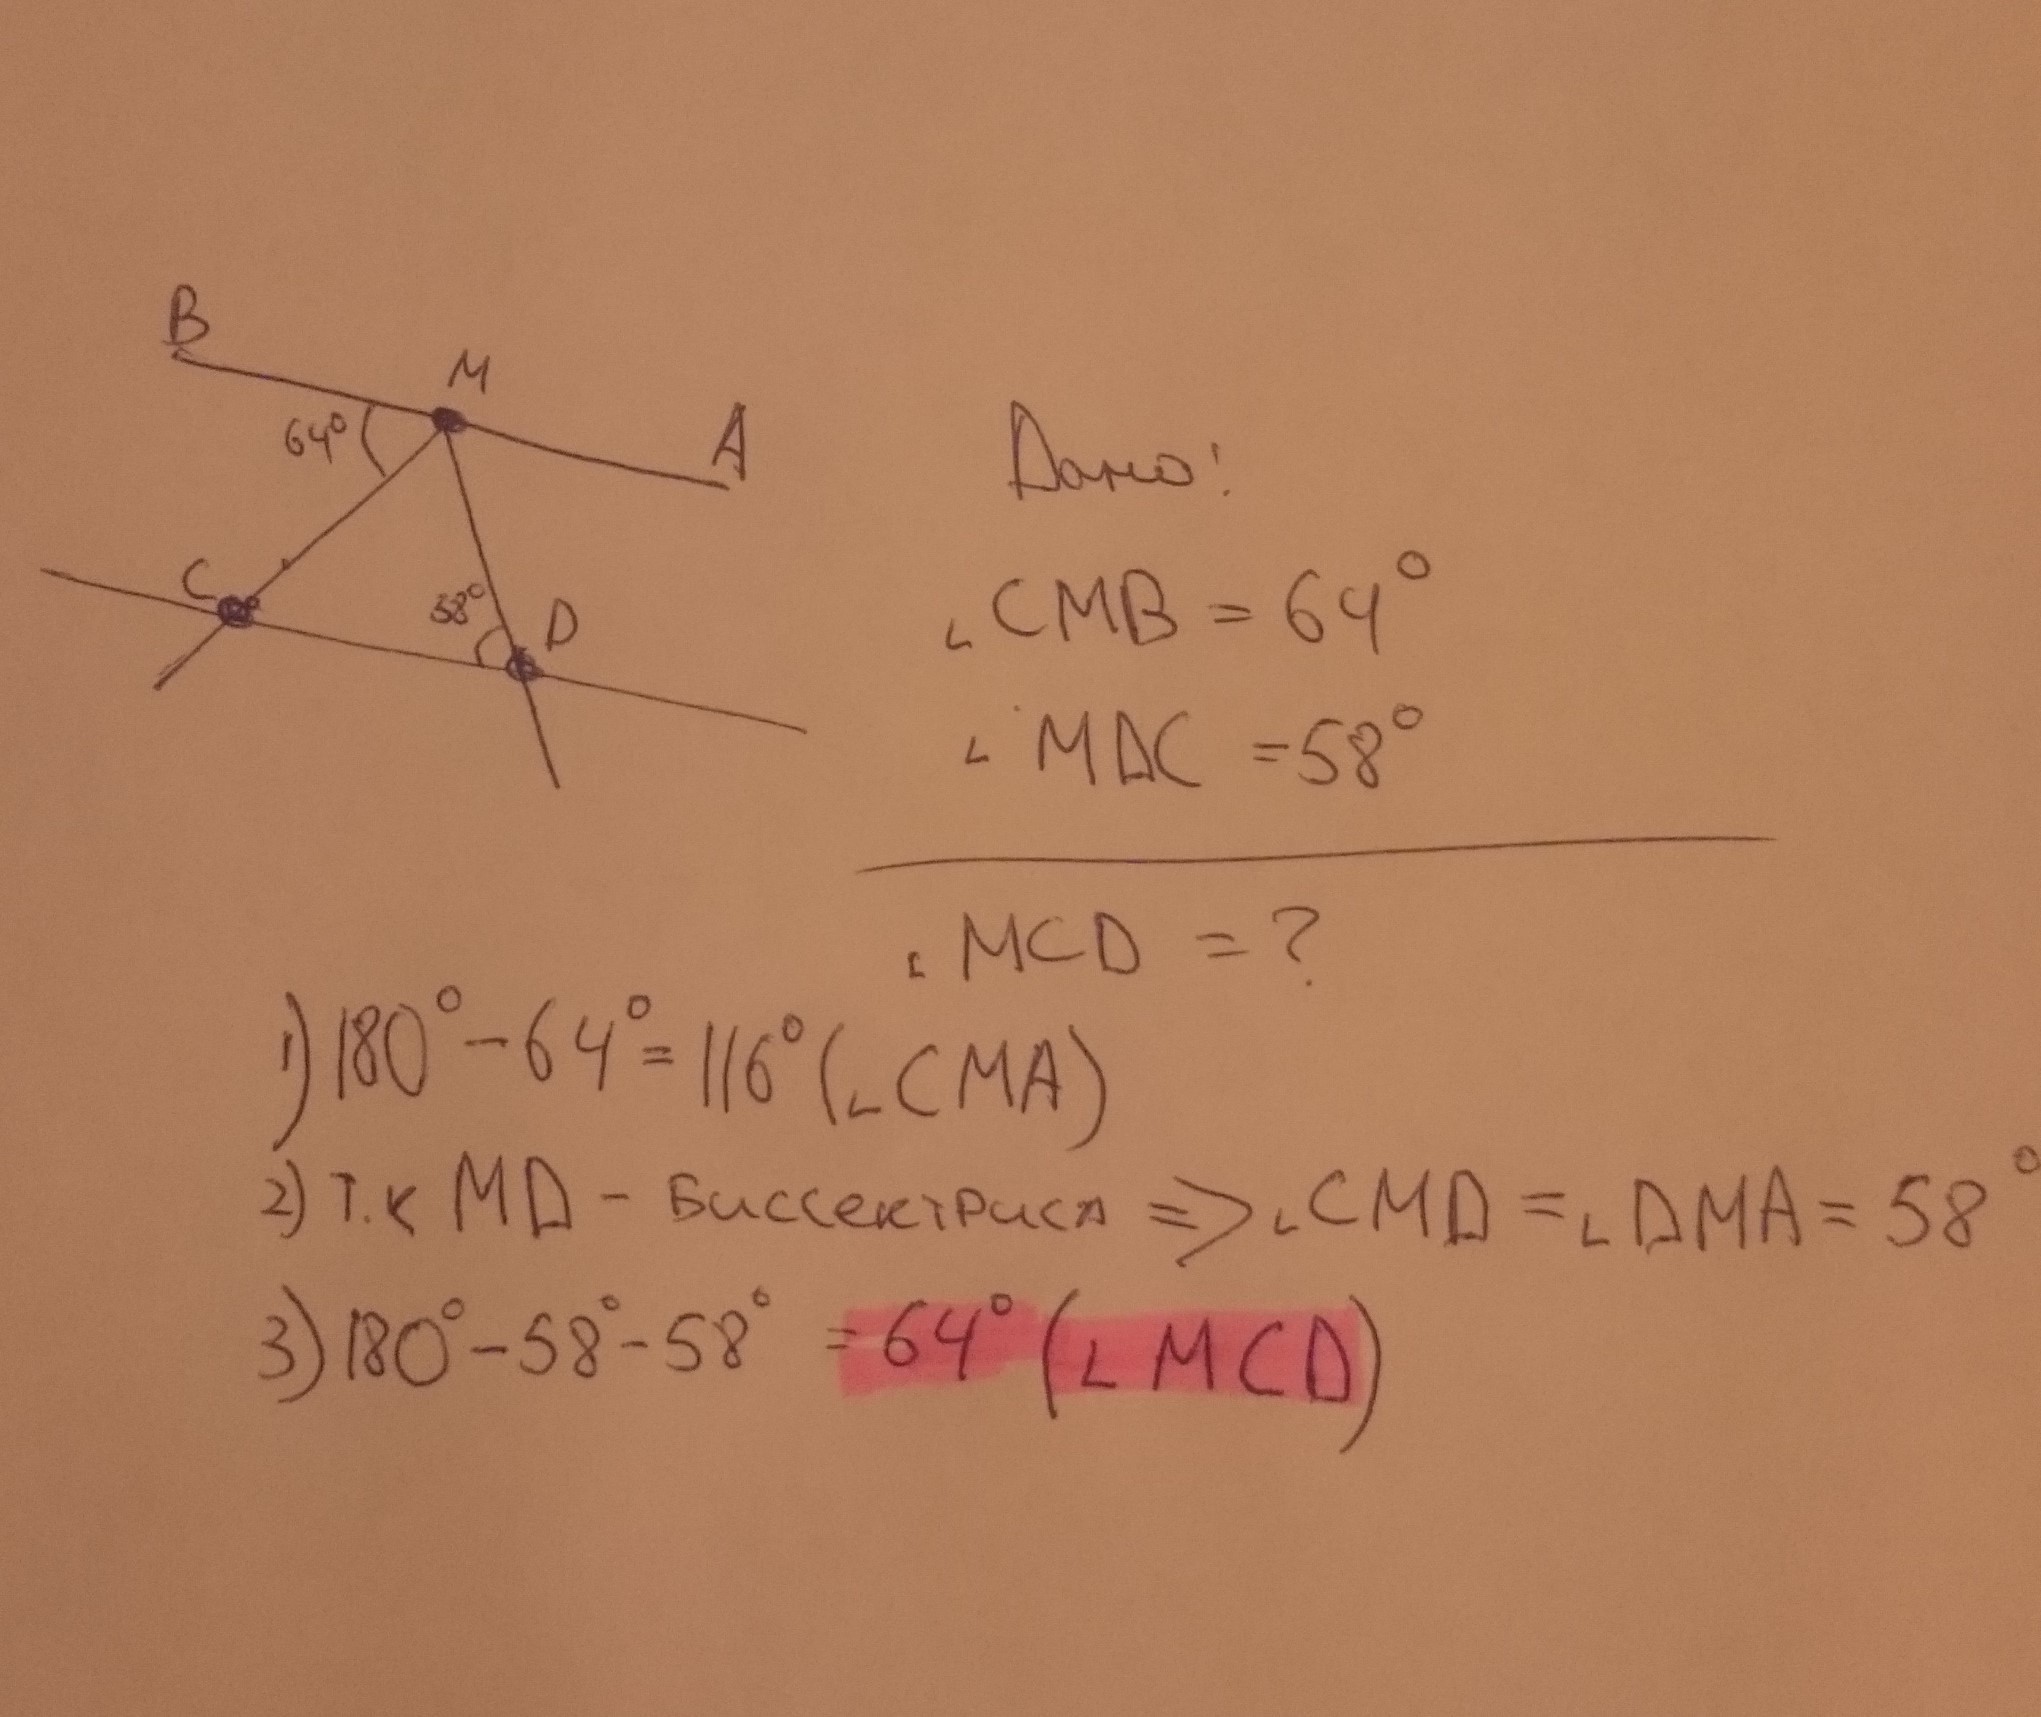 B
M
A
64°
C
58°
D
Дано:
∟CMB = 64°
∟MDC = 58°
∟MCD = ?
1) 180° - 64° = 116° (∟CMA)
2) т.к MD - Биссектриса => ∟CMD = ∟DMA = 58°
3) 180° - 58° - 58° = 64° (∟MCD)